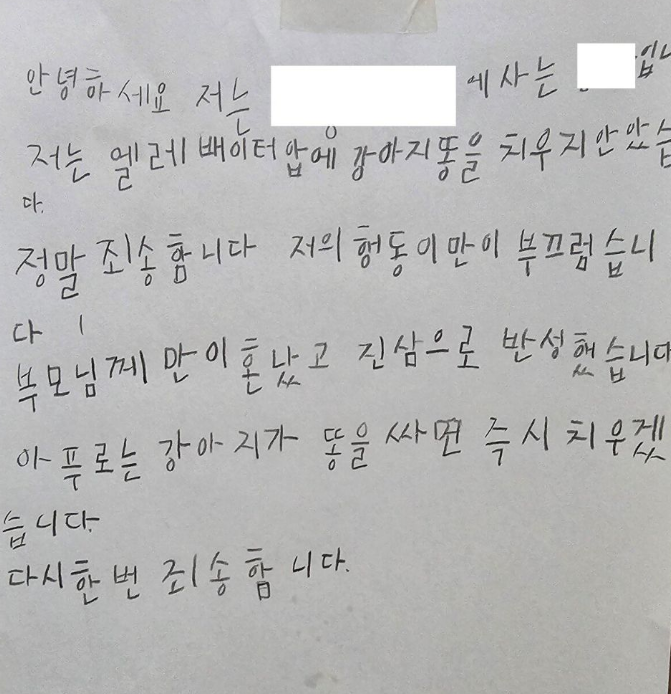 안녕하세요 저는 에 사는 입니
저는 엘레베이터 앞에 강아지똥을 치우지 안았습
다.
정말 죄송합니다 저의 행동이 만이 부끄럽습니
다
부모님께 만이 혼났고 진삼으로 반성했습니다
아푸로는 강아지가 똥을 싸면 즉시 치우겠
습니다.
다시한번 죄송합니다.